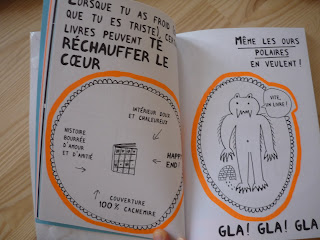 LORSQUE TU AS FROID (
QUE TU ES TRISTE), CER
LIVRES PEUVENT TE
RÉCHAUFFER LE
CŒUR
INTÉRIEUR DOUX
ET CHALEUREUX
HISTOIRE
BOURRÉE
D'AMOUR
ET D'AMITIÉ
HAPPY
END!
COUVERTURE
100% CACHEMIRE
MÊME LES OURS
POLAIRES
EN VEULENT!
VITE,
UN LIVRE!
GLA! GLA! GLA